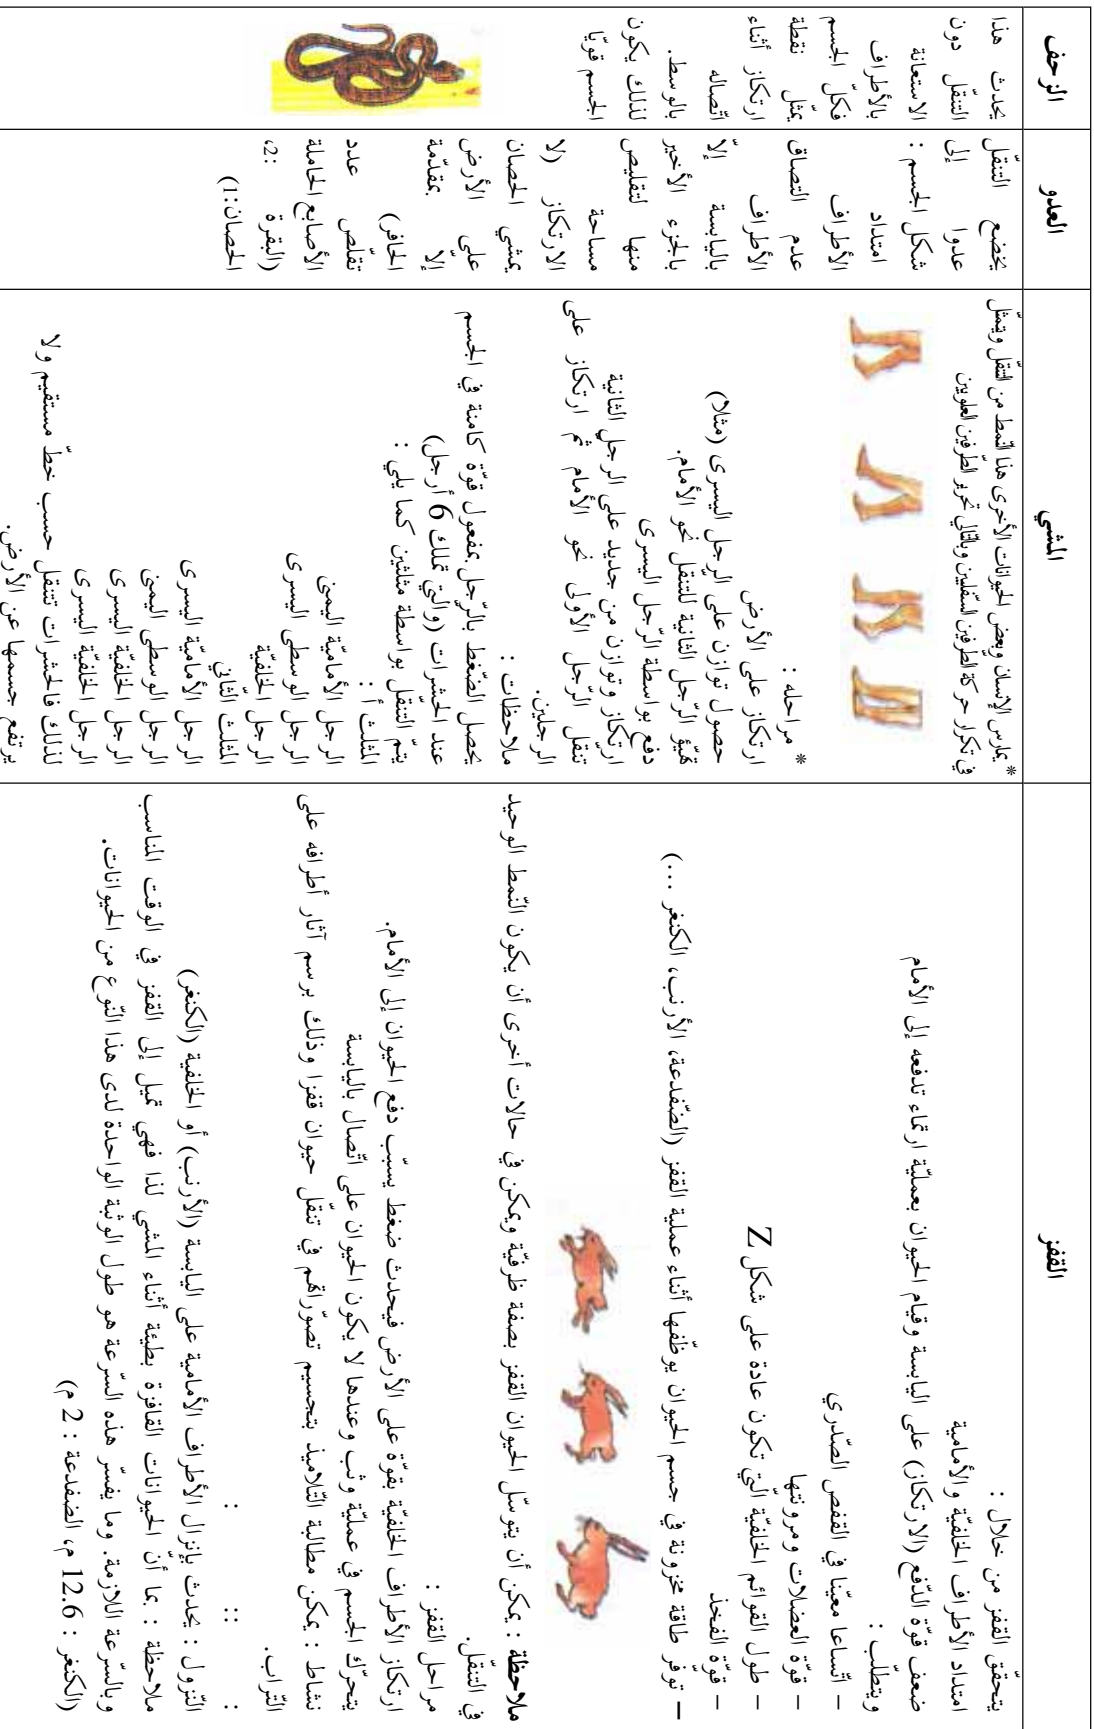 القفز
يتحقق القفز من خلال :
امتداد الأطراف الخلفيّة والأمامية
ضعف قوّة الدّفع (الارتكاز) على اليابسة وقيام الحيوان بعمليّة ارتماء تدفعه إلى الأمام
ويتطلّب :
– اتّساعا معيّنا في القفص الصّدري
– قوّة العضلات ومرونتها
– طول القوائم الخلفيّة الّتي تكون عادة على شكل Z
– قوّة الفخذ
– توفّر طاقة مخزونة في جسم الحيوان يوظّفها أثناء عملية القفز (الضّفدعة، الأرنب، الكنغر ...)
ملاحظة : يمكن أن يتوسّل الحيوان القفز بصفة ظرفيّة ويمكن في حالات أخرى أن يكون النّمط الوحيد
في التنقّل.
مراحل القفز :
ارتكاز الأطراف الخلفيّة بقوّة على الأرض فيحدث ضغط يسبّب دفع الحيوان إلى الأمام.
يتحرّك الجسم في عمليّة وثب وعندها لا يكون الحيوان على اتّصال باليابسة
نشاط : يمكن مطالبة التّلاميذ بتجسيم تصوّراتهم في تنقّل حيوان قفزا وذلك برسم آثار أطرافه على
التّراب.
: :: :
النّزول : يحدث بإنزال الأطراف الأمامية على اليابسة (الأرنب) أو الخلفية (الكنغر)
ملاحظة : بما أنّ الحيوانات القافزة بطيئة أثناء المشي لذا فهي تميل إلى القفز في الوقت المناسب
وبالسّرعة اللازمة. وما يفسّر هذه السّرعة هو طول الوثبة الواحدة لدى هذا النّوع من الحيوانات.
(الكنغر : 12.6 م، الضفدعة : 2 م)
المشي
* يمارس الإنسان وبعض الحيوانات الأخرى هذا النّمط من التّنقل ويتمثّل
في تكرار حركة الطرفين السّفليين وبالتّالي تحرير الطّرفين العلويين
* مراحله :
ارتكاز على الأرض
حصول توازن على الرجل اليسرى (مثلا)
تهيّؤ الرّجل الثانية للتنقل نحو الأمام.
دفع بواسطة الرّجل اليسرى
ارتكاز وتوازن من جديد على الرجل الثانية
تنقّل الرّجل الأولى نحو الأمام ثم ارتكاز على
الرجلين.
ملاحظات :
يحصل الضّغط بالرّجل بمفعول قوّة كامنة في الجسم
عند الحشرات (والتي تملك 6 أرجل)
يتمّ التنقل بواسطة مثلثين كما يلي :
المثلث أ :
الرجل الأماميّة اليمنى
الرجل الوسطى اليسرى
الرجل الخلفيّة
المثلث الثّاني
الرجل الأماميّة اليسرى
الرجل الوسطى اليمنى
الرجل الخلفيّة اليسرى
الرجل الخلفيّة اليسرى
لذلك فالحشرات تتنقل حسب خطّ مستقيم ولا
يرتفع جسمها عن الأرض.
العدو
يخضع التنقّل
عدوا إلى
شكل الجسم :
امتداد
الأطراف
عدم التصاق
الأطراف
باليابسة إلاّ
بالجزء الأخير
منها لتقليص
مساحة
الارتكاز (لا
يمشي الحصان
على الأرض
إلاّ بمقدّمة
الحافر)
تقلّص عدد
الأصابع الحاملة
(البقرة :2،
الحصان:1)
الزحف
يحدث هذا
التنقّل دون
الاستعانة
بالأطراف
فكلّ الجسم
يمثّل نقطة
ارتكاز أثناء
اتّصاله
بالوسط.
لذلك يكون
الجسم قويّا